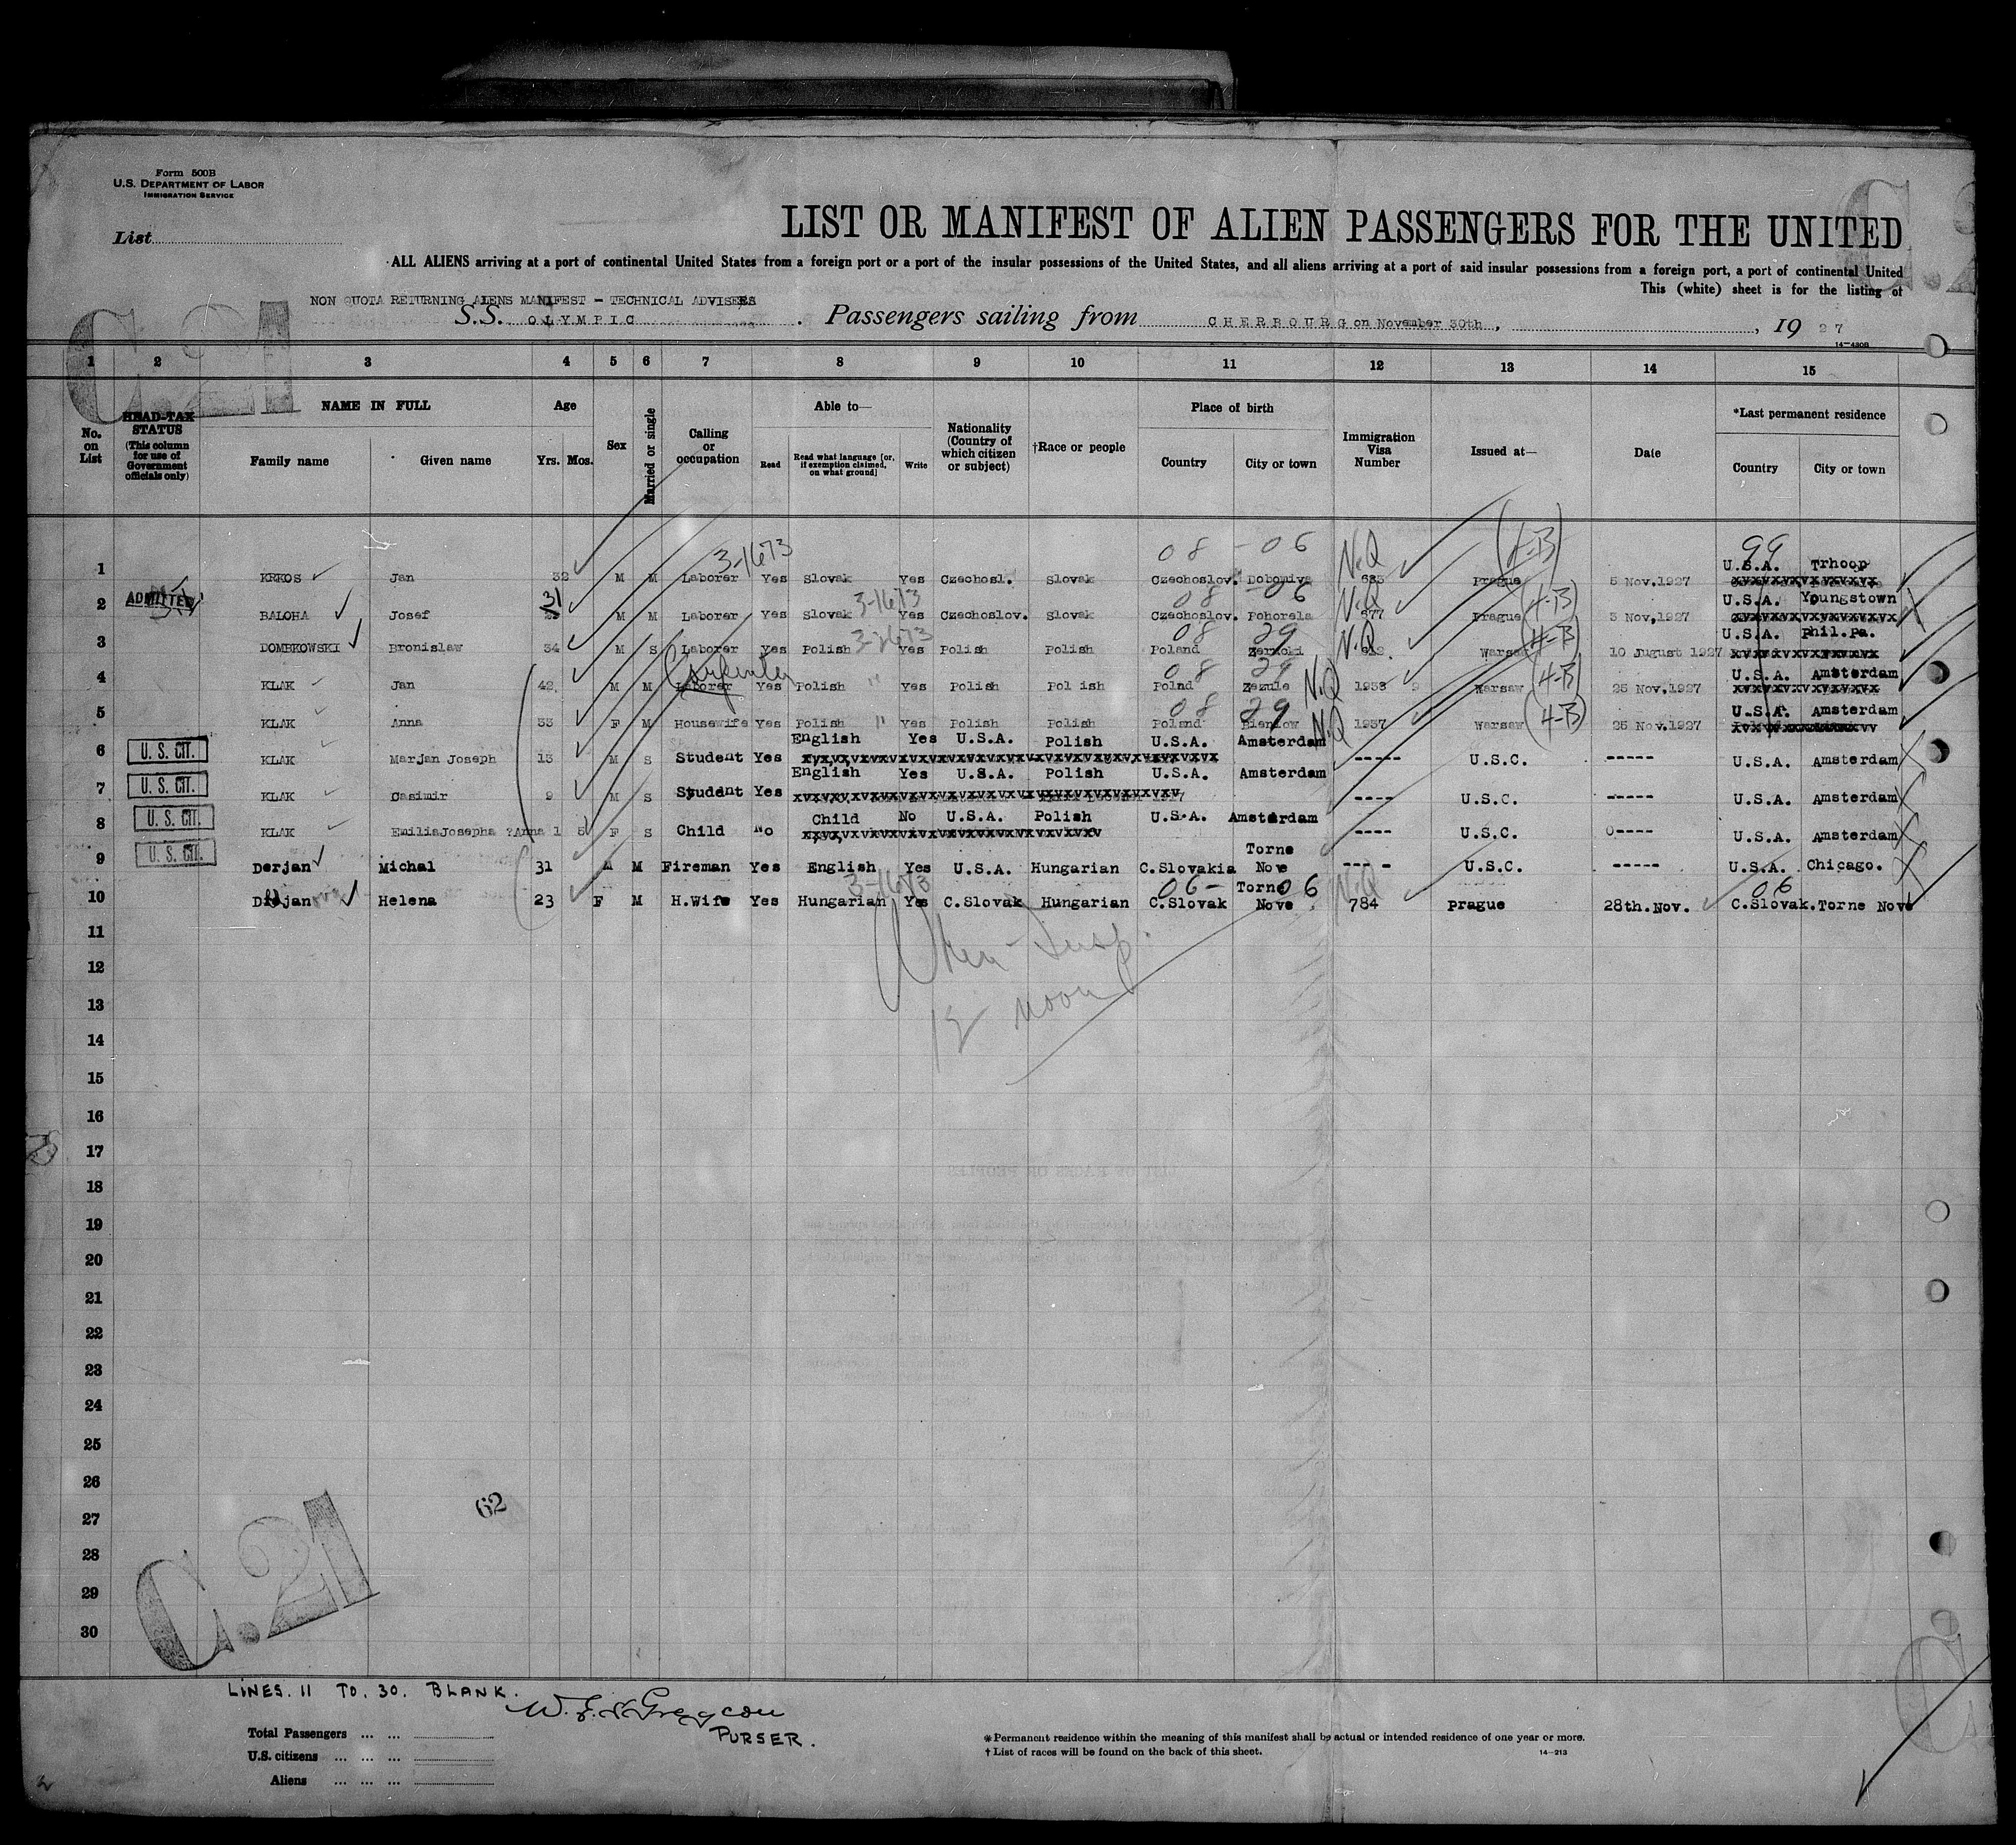 Form 500B
U.S. DEPARTMENT OF LABOR
IMMIGRATION SERVICE
List
LIST OR MANIFEST OF ALIEN PASSENGERS FOR THE UNITED
ALL ALIENS arriving at a port of continental United States from a foreign port or a port of the insular possessions of the United States, and all aliens arriving at a port of said insular possessions from a foreign port, a port of continental United
This (white) sheet is for the listing of
NON QUOTA RETURNING ALENS MANIFEST - TECHNICAL ADVISERS
S.S. OLYMPIC. Passengers sailing from CHERBOURG on November 30th, , 19 27
14-430B
C.21
1 2 3 4 5 6 7 8 9 10 11 12 13 14 15
No. on List
HEAD-TAX STATUS (This column for use of Government officials only)
NAME IN FULL
Family name Given name
Age Yrs. Mos.
Sex
Married or single
Calling or occupation
Able to—
Read Read what language [or, if exemption claimed, on what ground] Write
Nationality (Country of which citizen or subject)
†Race or people
Place of birth
Country City or town
Immigration Visa Number
Issued at—
Date
*Last permanent residence
Country City or town
3-1673 08 - 06 N.Q (4-B) 99
1 KRKOS Jan 32 M M Laborer Yes Slovak Yes Czechosl. Slovak Czechoslov. Dobomiva 683 Prague 5 Nov.1927 U.S.A. Trhoop
ADMITTED 31 3-1673 08 - 06 N.Q (4-B)
2 BALOHA Josef M M Laborer Yes Slovak Yes Czechoslov. Slovak Czechoslov. Pohorela 677 Prague 3 Nov,1927 U.S.A. Youngstown
3-2673 08 29 N.Q (4-B)
3 DOMBKOWSKI Bronislaw 34 M S Laborer Yes Polish Yes Polish Polish Poland Warsaw 10 August 1927 U.S.A. Phil.Pa.
Carpenter 08 29 N.Q (4-B)
4 KLAK Jan 42 M M Laborer Yes Polish " Yes Polish Pol ish Polnd Zezule 1938 Warsaw 25 Nov.1927 U.S.A. Amsterdam
08 29 N.Q (4-B)
5 KLAK Anna 33 F M Housewife Yes Polish " Yes Polish Polish Poland Bieniow 1937 Warsaw 25 Nov.1927 U.S.A. Amsterdam
6 U. S. CIT. KLAK Marjan Joseph 13 M S Student Yes English Yes U.S.A. Polish U.S.A. Amsterdam ----- U.S.C. ----- U.S.A. Amsterdam
7 U. S. CIT. KLAK Casimir 9 M S Student Yes English Yes U.S.A. Polish U.S.A. Amsterdam ---- U.S.C. ---- U.S.A. Amsterdam
8 U. S. CIT. KLAK EmiliaJosepha ?Anna 1 5 F S Child No Child No U.S.A. Polish U.S.A. Amsterdam ---- U.S.C. 0---- U.S.A. Amsterdam
9 U. S. CIT. Derjan Michal 31 M M Fireman Yes English Yes U.S.A. Hungarian C.Slovakia Torne Nove ---- U.S.C. ----- U.S.A. Chicago.
3-1673 06 - 06 N.Q 06
10 Derjan Helena 23 F M H.Wife Yes Hungarian Yes C.Slovak Hungarian C.Slovak Torne Nove 784 Prague 28th.Nov. C.Slovak.Torne Nove
12 noon
11
12
13
14
15
16
17
18
19
20
21
22
23
24
25
26
27
28
29
30
62
C.21
LINES. 11 TO. 30. BLANK.
PURSER.
Total Passengers ... ...
U.S. citizens ... ... ...
Aliens ... ... ...
* Permanent residence within the meaning of this manifest shall be actual or intended residence of one year or more.
† List of races will be found on the back of this sheet.
14-213